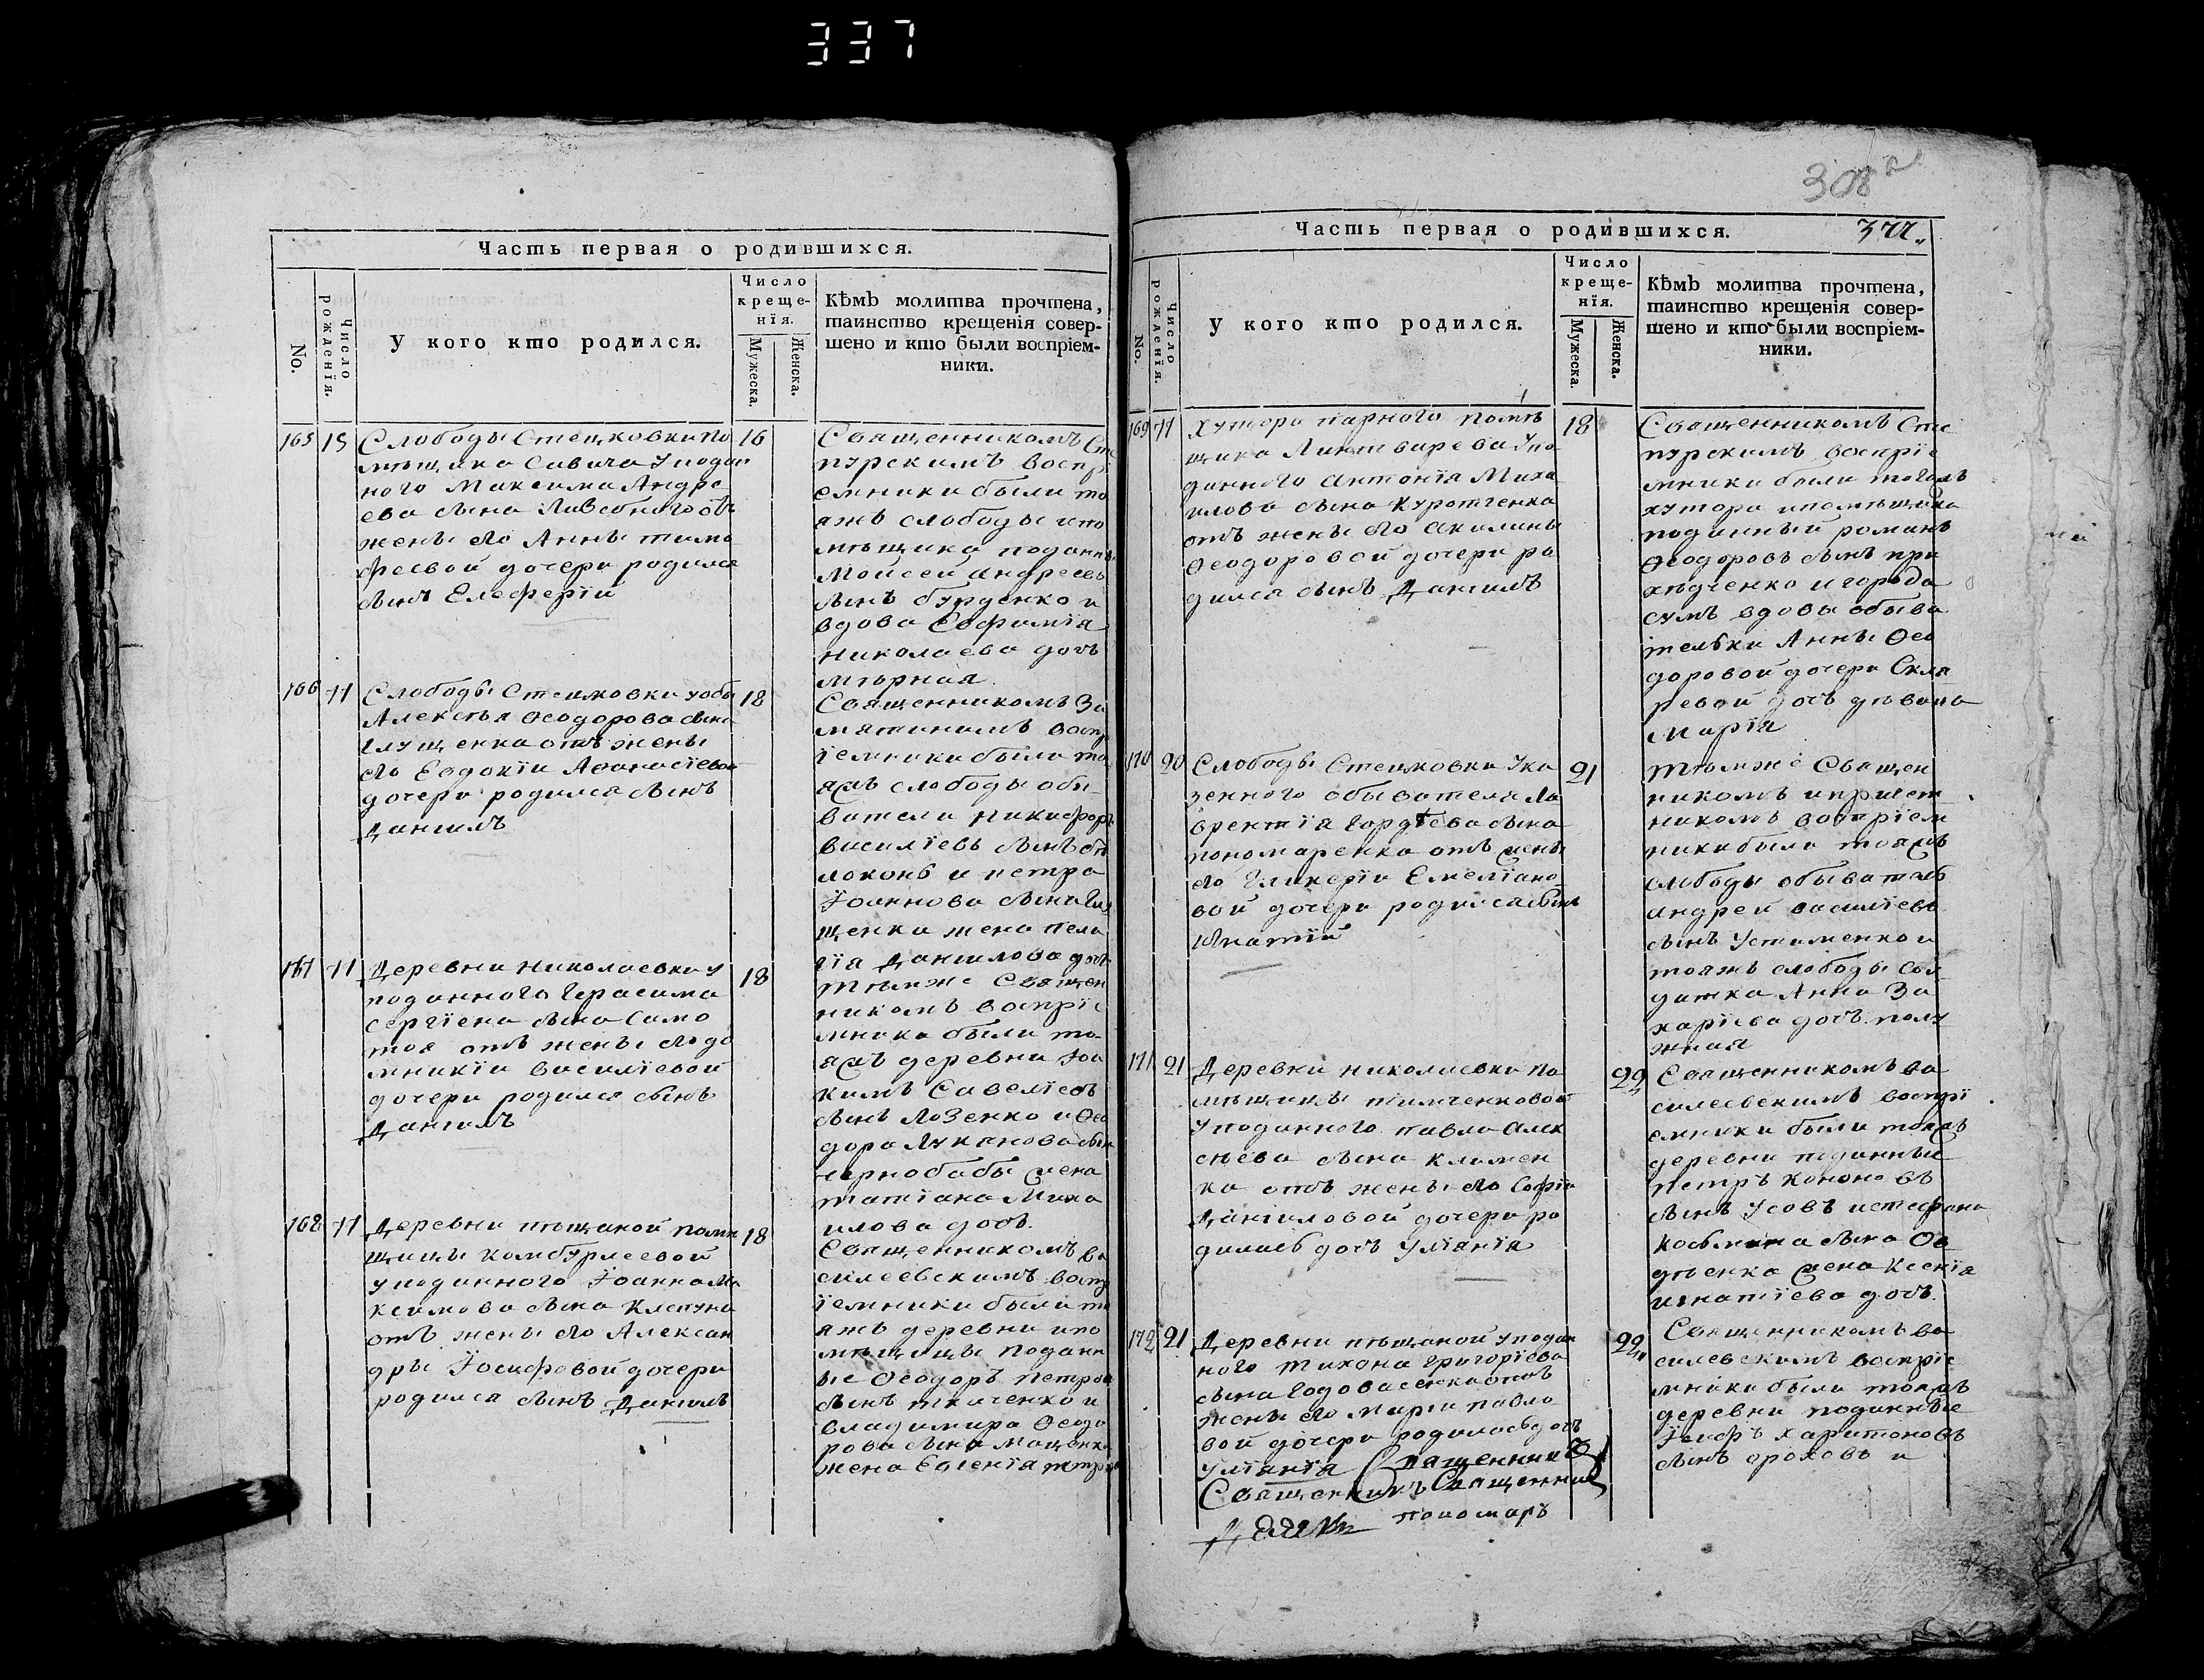 337
308
377
Часть первая о родившихся.
No.
Число рожденїя.
У кого кто родился.
Число креще-
нїя.
Мужеска.
Женска.
Кѣмъ молитва прочтена,
таинство крещенїя совер-
шено и кто были воспрїем-
ники.
165 15 16
Слободы Стецковки по
мѣщика Савича у подан
ного Максима Андре
ева сына
жены его Анны тимо
феевой дочери родился
сынъ Елеѳерїй
Священникомъ Сте
пурскимъ воспрї
емники были то
яжъ слободы и по
мѣщика поданны
Мойсей андреевъ
сынъ бурденко и
вдова Евфимїя
николаева дочь
мѣрная
166 11 18
Слободы Стецковки у обы
Алексѣя Ѳеодорова сына
глущенка отъ жены
его Евдокїи Аѳанасїевой
дочери родился сынъ
Данїилъ
Священникомъ За
мятинымъ воспр
їемники были то
яжъ слободы обы
ватели никифоръ
василїевъ сынъ
и петра
Їоаннова сына глу
щенка жена пела
гїя Данїилова дочь
167 11 18
Деревни николаевки у
поданного Герасима
сергїева сына само
тоя отъ жены его до
мникїи василїевой
дочери родился сынъ
Данїилъ
тѣмже Священ
никомъ воспрїе
мники были то
яжъ деревни Їоа
кимъ Савелїевъ
сынъ Лозенко и Ѳео
дора Луканова сына
чернобабы жена
татїана Миха
илова дочь.
168 11 18
Деревни пѣщаной помѣ
щицы камбурлеевой
у поданного Їоанна Ма
ксимова сына Клепуна
отъ жены его Алексан
дры Їосифовой дочери
родился сынъ Данїилъ
Священникомъ ва
силеевскимъ воспр
їемники были то
яжъ деревни и по
мѣщицы поданн
ые Ѳеодоръ петровъ
сынъ ткаченко и
владимира Ѳеодо
рова сына мащенка
жена Евгенїя петро
Часть первая о родившихся.
No.
Число рожденїя.
У кого кто родился.
Число креще-
нїя.
Мужеска.
Женска.
Кѣмъ молитва прочтена,
таинство крещенїя совер-
шено и кто были воспрїем-
ники.
169 11 18
Хутора парного помѣ
щика Линтварева у по
данного антонїя Миха
илова сына куротченка
отъ жены его акилины
Ѳеодоровой дочери ро
дился сынъ Данїилъ
Священникомъ Сте
пурскимъ воспрїе
мники были тогожъ
хутора и помѣщика
поданный романъ
Ѳеодоровъ сынъ при
ходченко и города
сумъ вдовы обыва
тельки Анны Ѳео
доровой дочери Скля
ревой дочь дѣвица
Марїя
170 20 21
Слободы Стецковки у ка
зенного обывателя Ла
врентїя Гордѣева сына
пономаренка отъ жены
его Гликерїи Емелїано
вой дочери родился сынъ
Игнатїй
тѣмже Священ
никомъ и причет
никомъ воспрїем
ники были тояжъ
слободы обыватель
андрей василїевъ
сынъ Устименко и
тояжъ слободы Сол
датка Анна За
харїева дочь
171 21 22
Деревни николаевки по
мѣщицы тимченковой
у поданного павла алек
сѣева сына климен
ка отъ жены его Софїи
Данїиловой дочери ро
дилась дочь Улїанїя
Священникомъ ва
силеевскимъ воспрї
емники были тояжъ
деревни поданные
петръ кононовъ
сынъ Усовъ и стефана
Косьмина сына Ов
дѣенка жена ксенїя
игнатїева дочь.
172 21 22
Деревни пѣщаной у подан
ного тихона григорїева
сына
жены его Марїи павло
вой дочери родилась дочь
Улїанїя
Священникомъ ва
силевскимъ воспрїе
мники были тояжъ
деревни поданные
Їосифъ харитоновъ
сынъ ороховъ и
Священникъ
Священникъ Священникъ
Дьякъ пономаръ